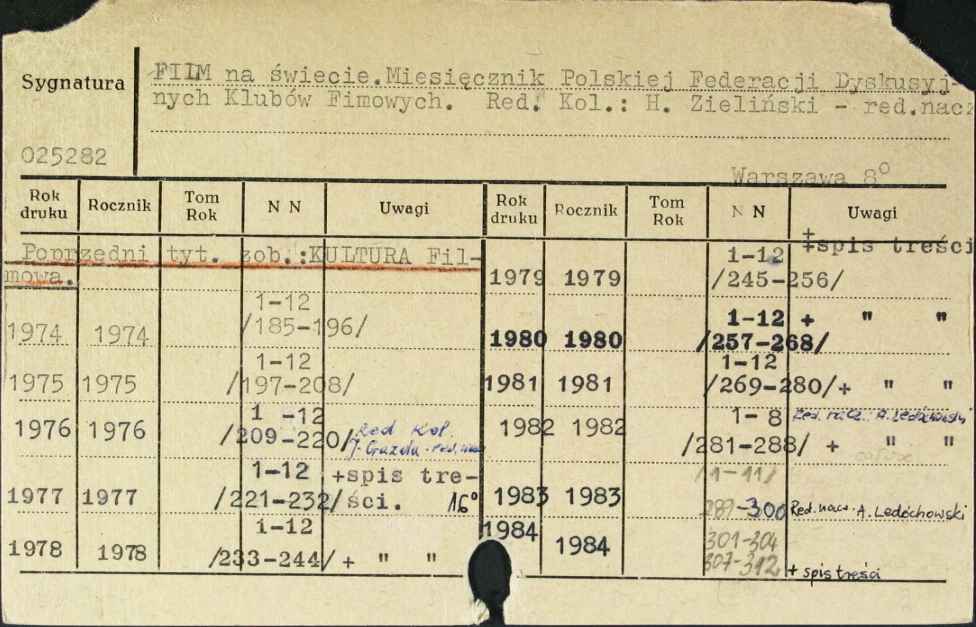 Sygnatura
FIIM na świecie.Miesięcznik Polskiej Federacji Dyskusyj-
nych Klubów Fimowych. Red. Kol.: H. Zieliński - red.nacz
025282
Warszawa 8°
Rok druku Rocznik Tom Rok N N Uwagi Rok druku Rocznik Tom Rok N N Uwagi
Poprzedni tyt. zob.:KULTURA Fil-
mowa.
1974 1974 1-12 /185-196/
1975 1975 1-12 /197-208/
1976 1976 1 -12 /209-220/ Red Kol.
1977 1977 1-12 /221-232/ +spis tre-
ści. 16°
1978 1978 1-12 /233-244/ + " "
1979 1979 1-12 /245-256/ +spis treści
1980 1980 1-12 /257-268/ + " "
1981 1981 1-12 /269-280/+ " "
1982 1982 1- 8 /281-288/ + " " Red. nacz. A. Ledóchowski
1983 1983 /1-11/ 289-300 Red. nacz. A. Ledóchowski
1984 1984 301-304
307-312 + spis treści